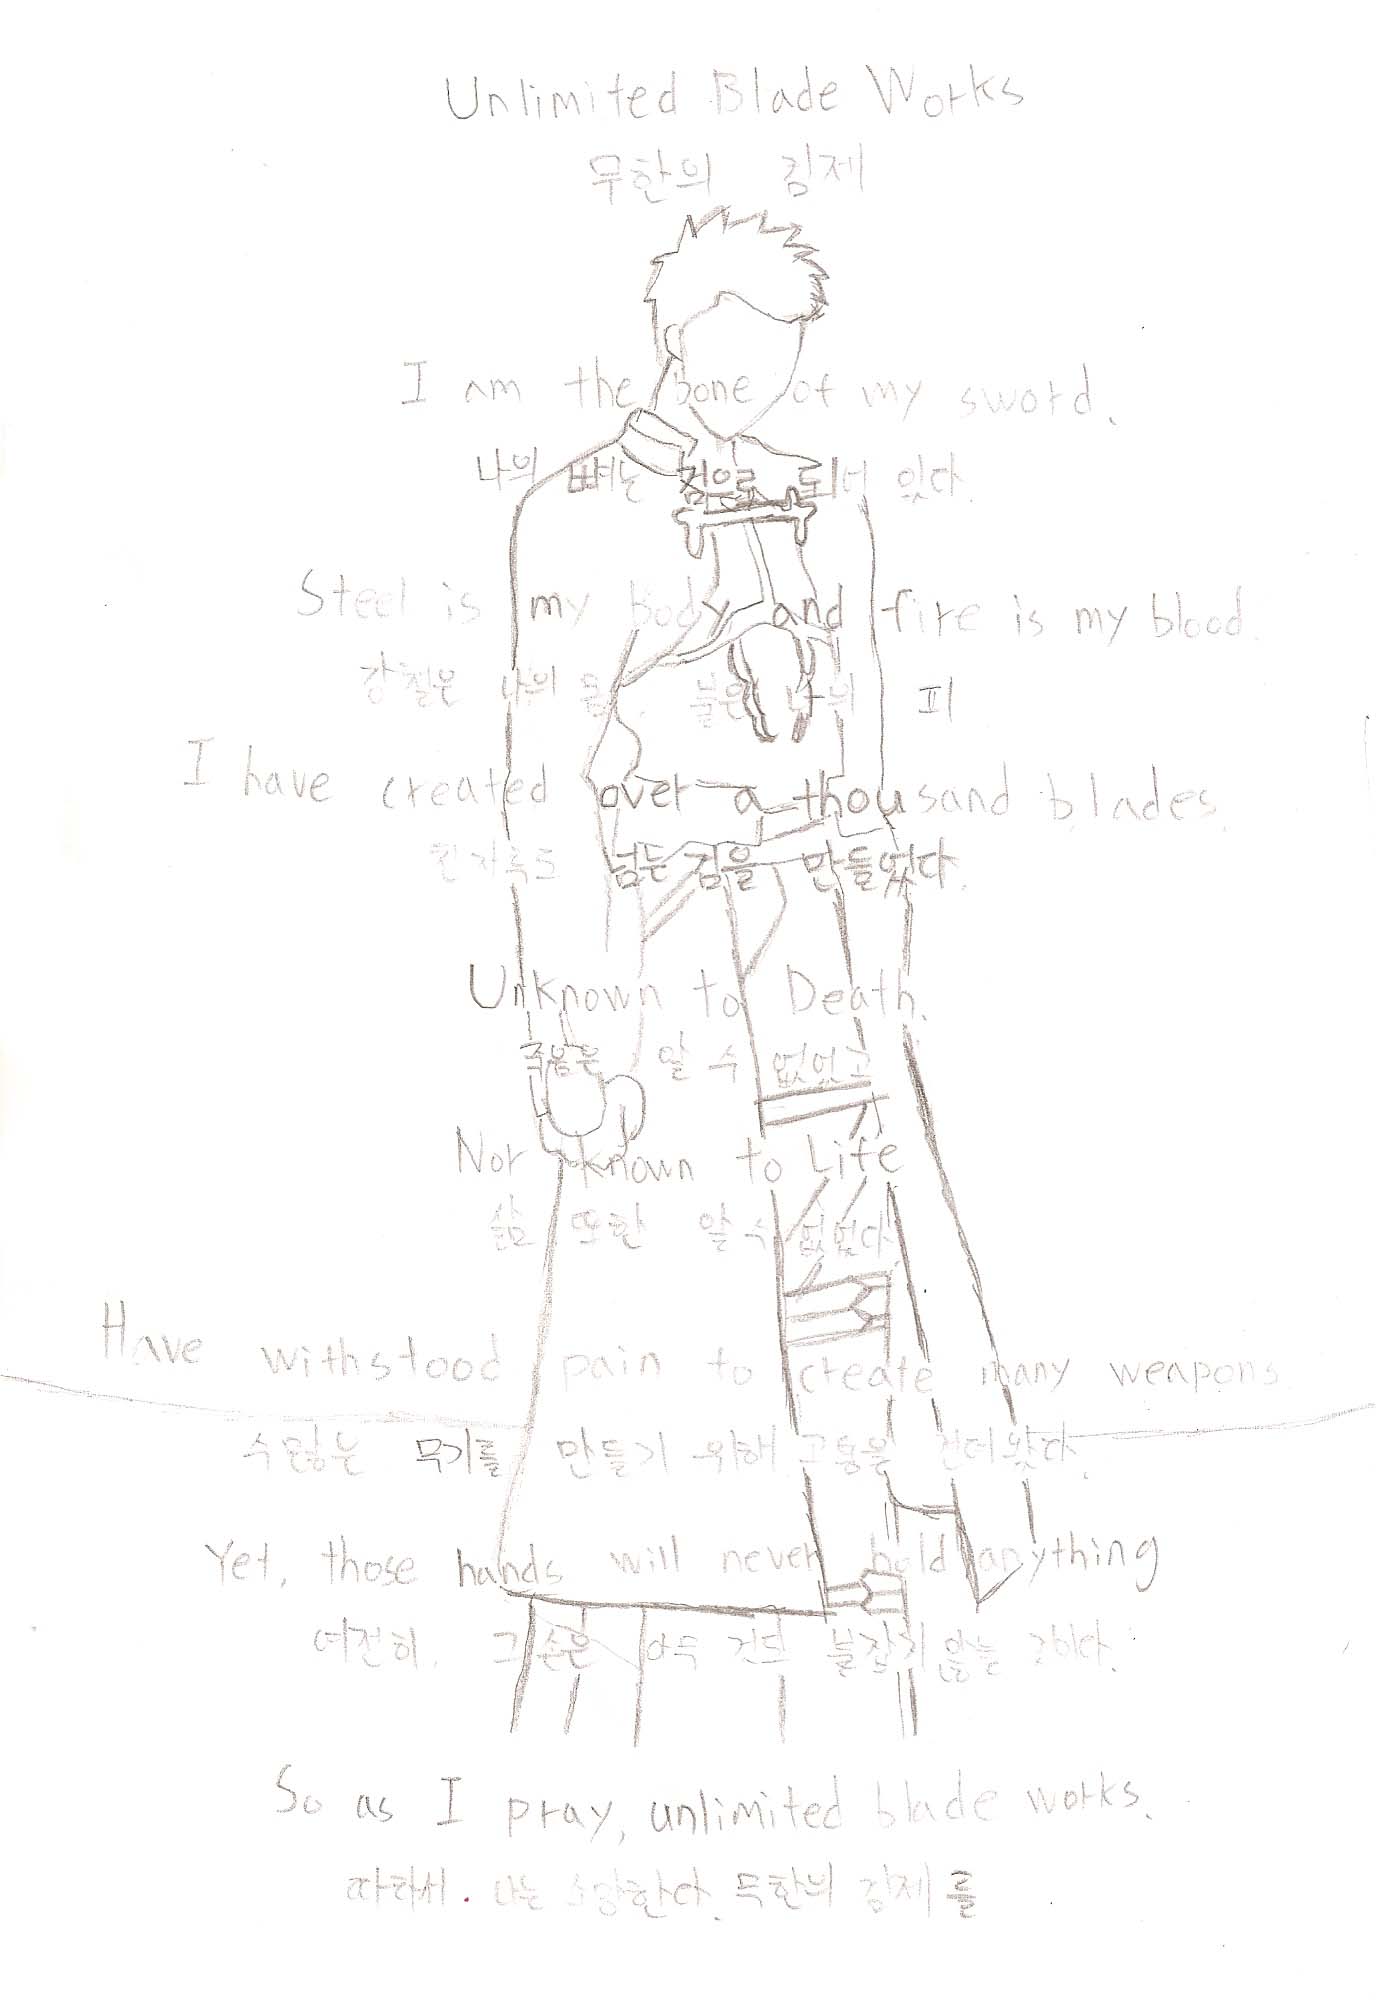 Unlimited Blade Works
무한의 검제
I am the bone of my sword.
나의 뼈는 검으로 되어 있다.
Steel is my body, and fire is my blood.
강철은 나의 몸, 불은 나의 피
I have created over a thousand blades.
천자루도 넘는 검을 만들었다.
Unknown to Death.
죽음은 알 수 없었고
Nor known to Life
삶 또한 알 수 없었다.
Have withstood pain to create many weapons
수많은 무기를 만들기 위해 고통을 견뎌왔다.
Yet, those hands will never hold anything
여전히, 그 손은 아무 것도 붙잡지 않는 것이다.
So as I pray, unlimited blade works.
따라서. 나는 소망한다. 무한의 검제를